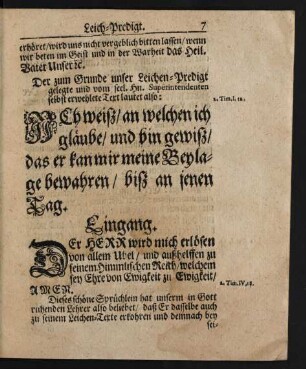 Leich-Predigt. 7
erhöret/ wird uns nicht vergeblich bitten lassen/ wenn
wir beten im Geist und in der Warheit das Heil.
Vater Unser ꝛc.
Der zum Grunde unser Leichen-Predigt
gelegte und vom seel. Hn. Superintendenten
selbst erwehlete Text lautet also:
2. Tim. I. 12.
ICh weiß/ an welchen ich
gläube/ und bin gewiß/
das er kan mir meine Beyla-
ge bewahren/ biß an jenen
Tag.
Eingang.
DEr HERR wird mich erlösen
von allem Ubel/ und außhelffen zu
seinem Himmlischen Reich/ welchem
sey Ehre von Ewigkeit zu Ewigkeit/
AMEN.
2. Tim. IV. 18.
Dieses schöne Sprüchlein hat unserm in Gott
ruhenden Lehrer also beliebet/ daß Er dasselbe auch
zu seinem Leichen-Texte erkohren und demnach bey
sei-